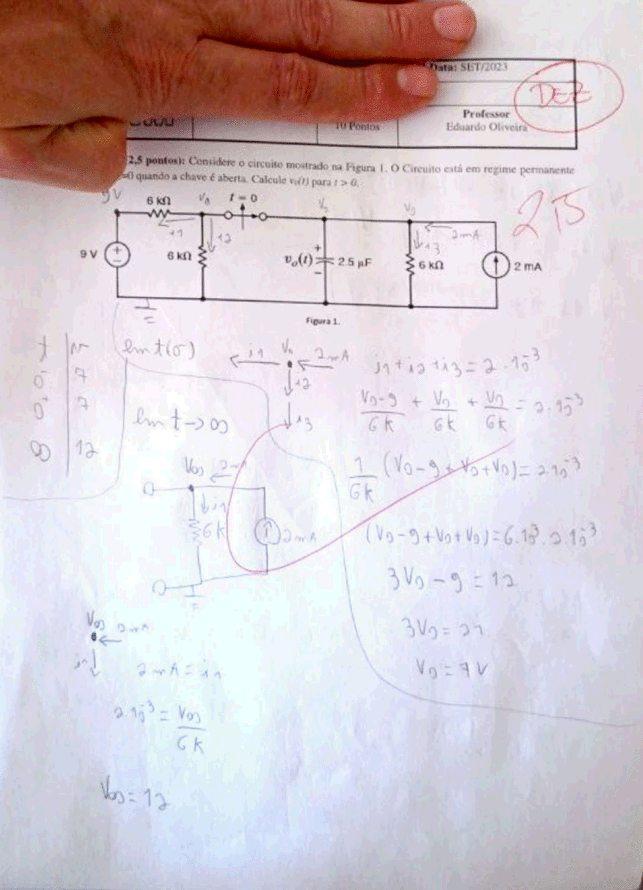 Data: SET/2023
DEZ
10 Pontos
Professor
Eduardo Oliveira
2,5 pontos): Considere o circuito mostrado na Figura 1. O Circuito está em regime permanente
=0 quando a chave é aberta. Calcule v₀(t) para t > 0.
2,5
9V
6 kΩ
V₀
t = 0
V₀
V₀
i1
i2
2mA
i3
9 V
6 kΩ
v₀(t)
+
−
2.5 µF
6 kΩ
2 mA
Figura 1.
t | v
0⁻ 7
0⁺ 7
∞ 12
em t(0⁻)
i1 V₀ 2mA
i2
i3
i1 + i2 + i3 = 2.10⁻³
V₀-9/6k + V₀/6k + V₀/6k = 2.10⁻³
em t→∞
1/6k (V₀-9+V₀+V₀) = 2.10⁻³
V∞ 2m
i1
6k
2mA
(V₀-9+V₀+V₀) = 6.10³.2.10⁻³
3V₀ - 9 = 12
3V₀ = 21
V₀ = 7V
V∞ 2mA
i1
2mA = i1
2.10⁻³ = V∞/6k
V∞ = 12